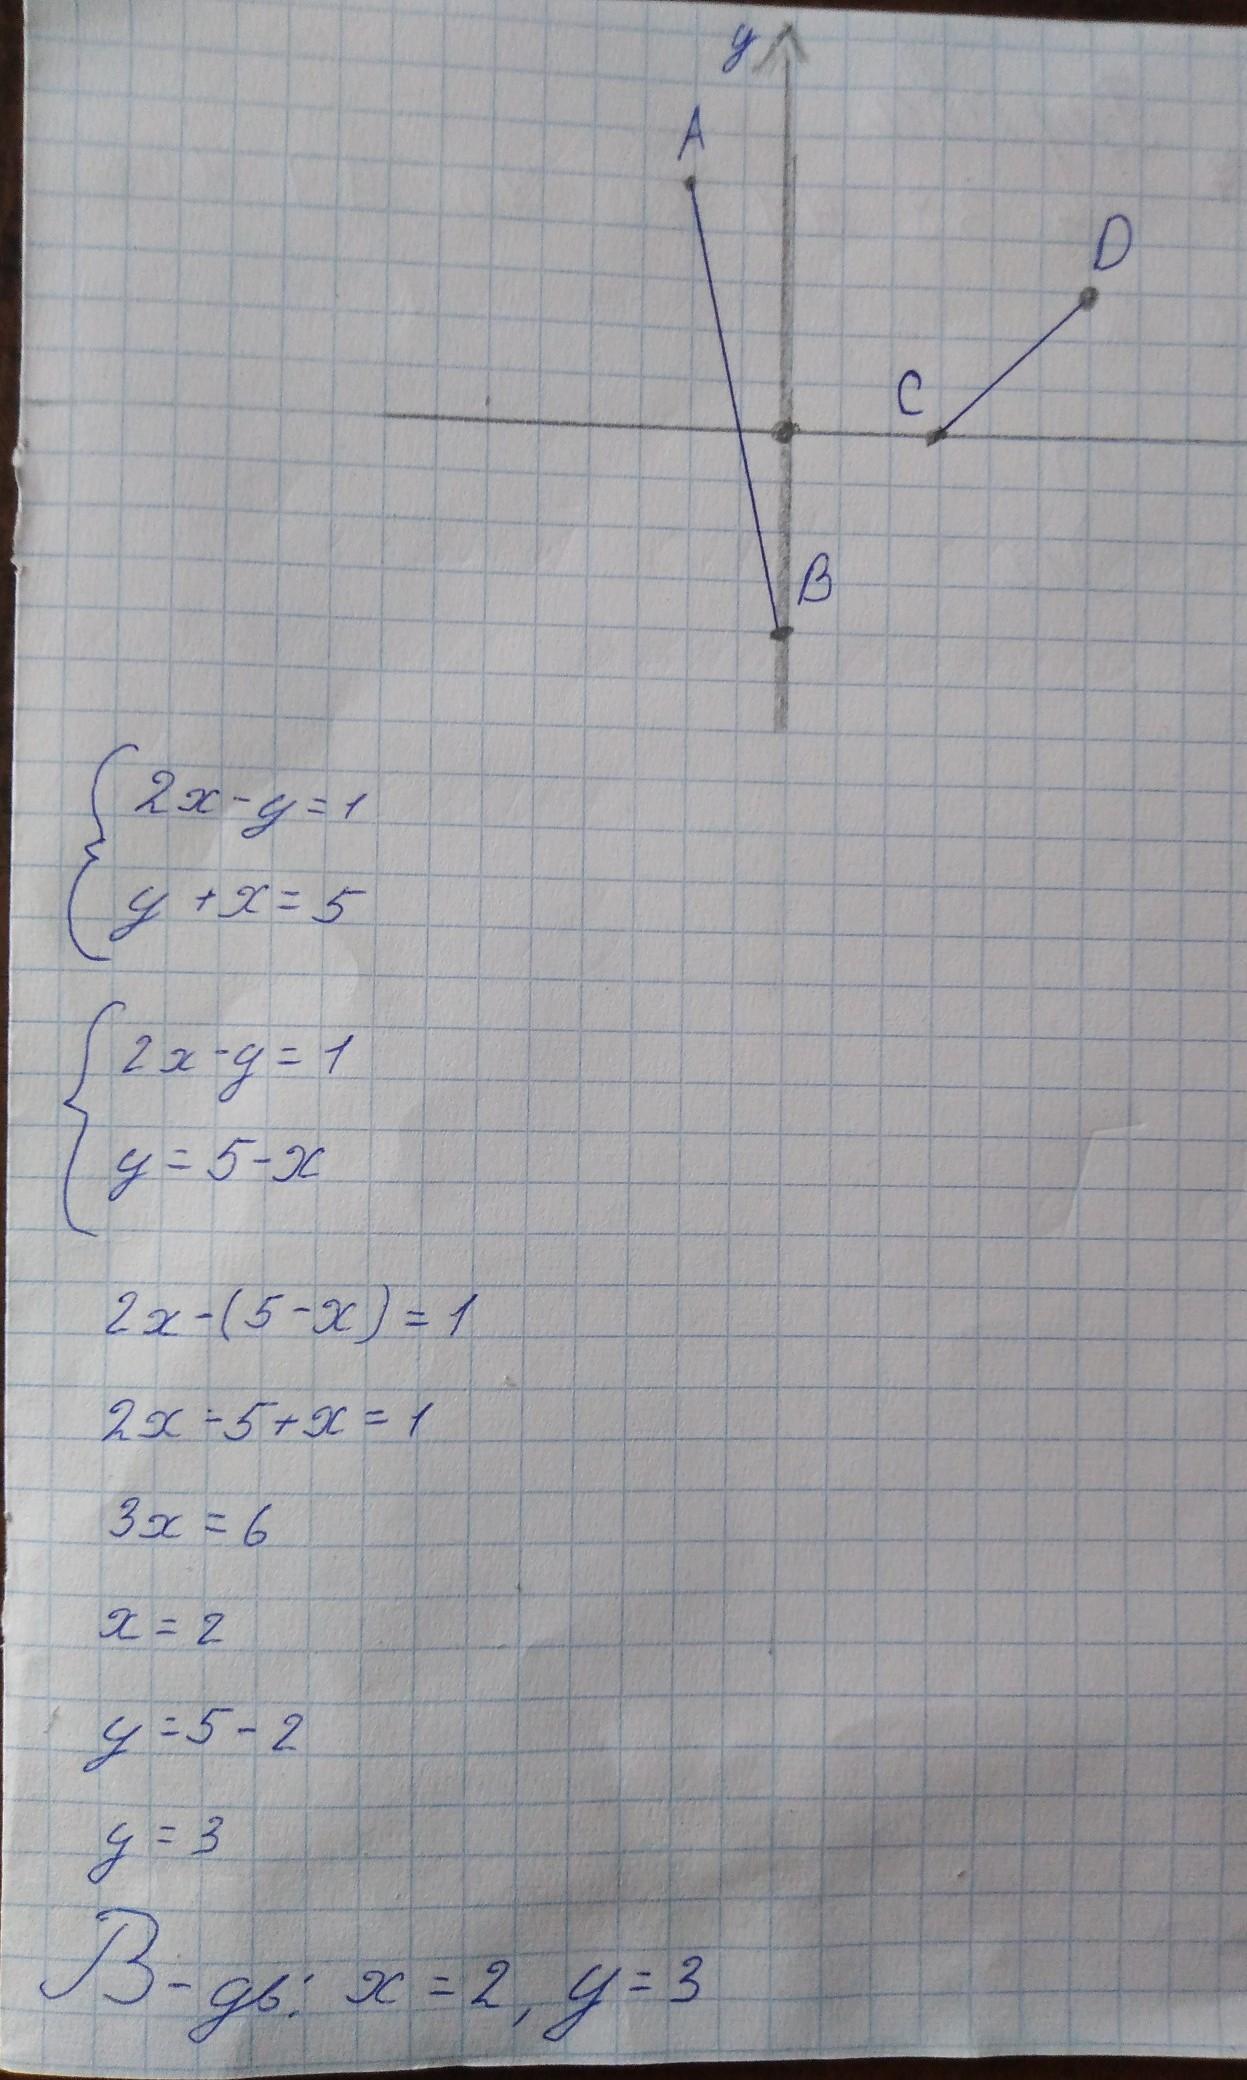 y
A
D
C
B
2x-y=1
y+x=5
2x-y=1
y=5-x
2x-(5-x)=1
2x-5+x=1
3x=6
x=2
y=5-2
y=3
В-дь: x=2, y=3